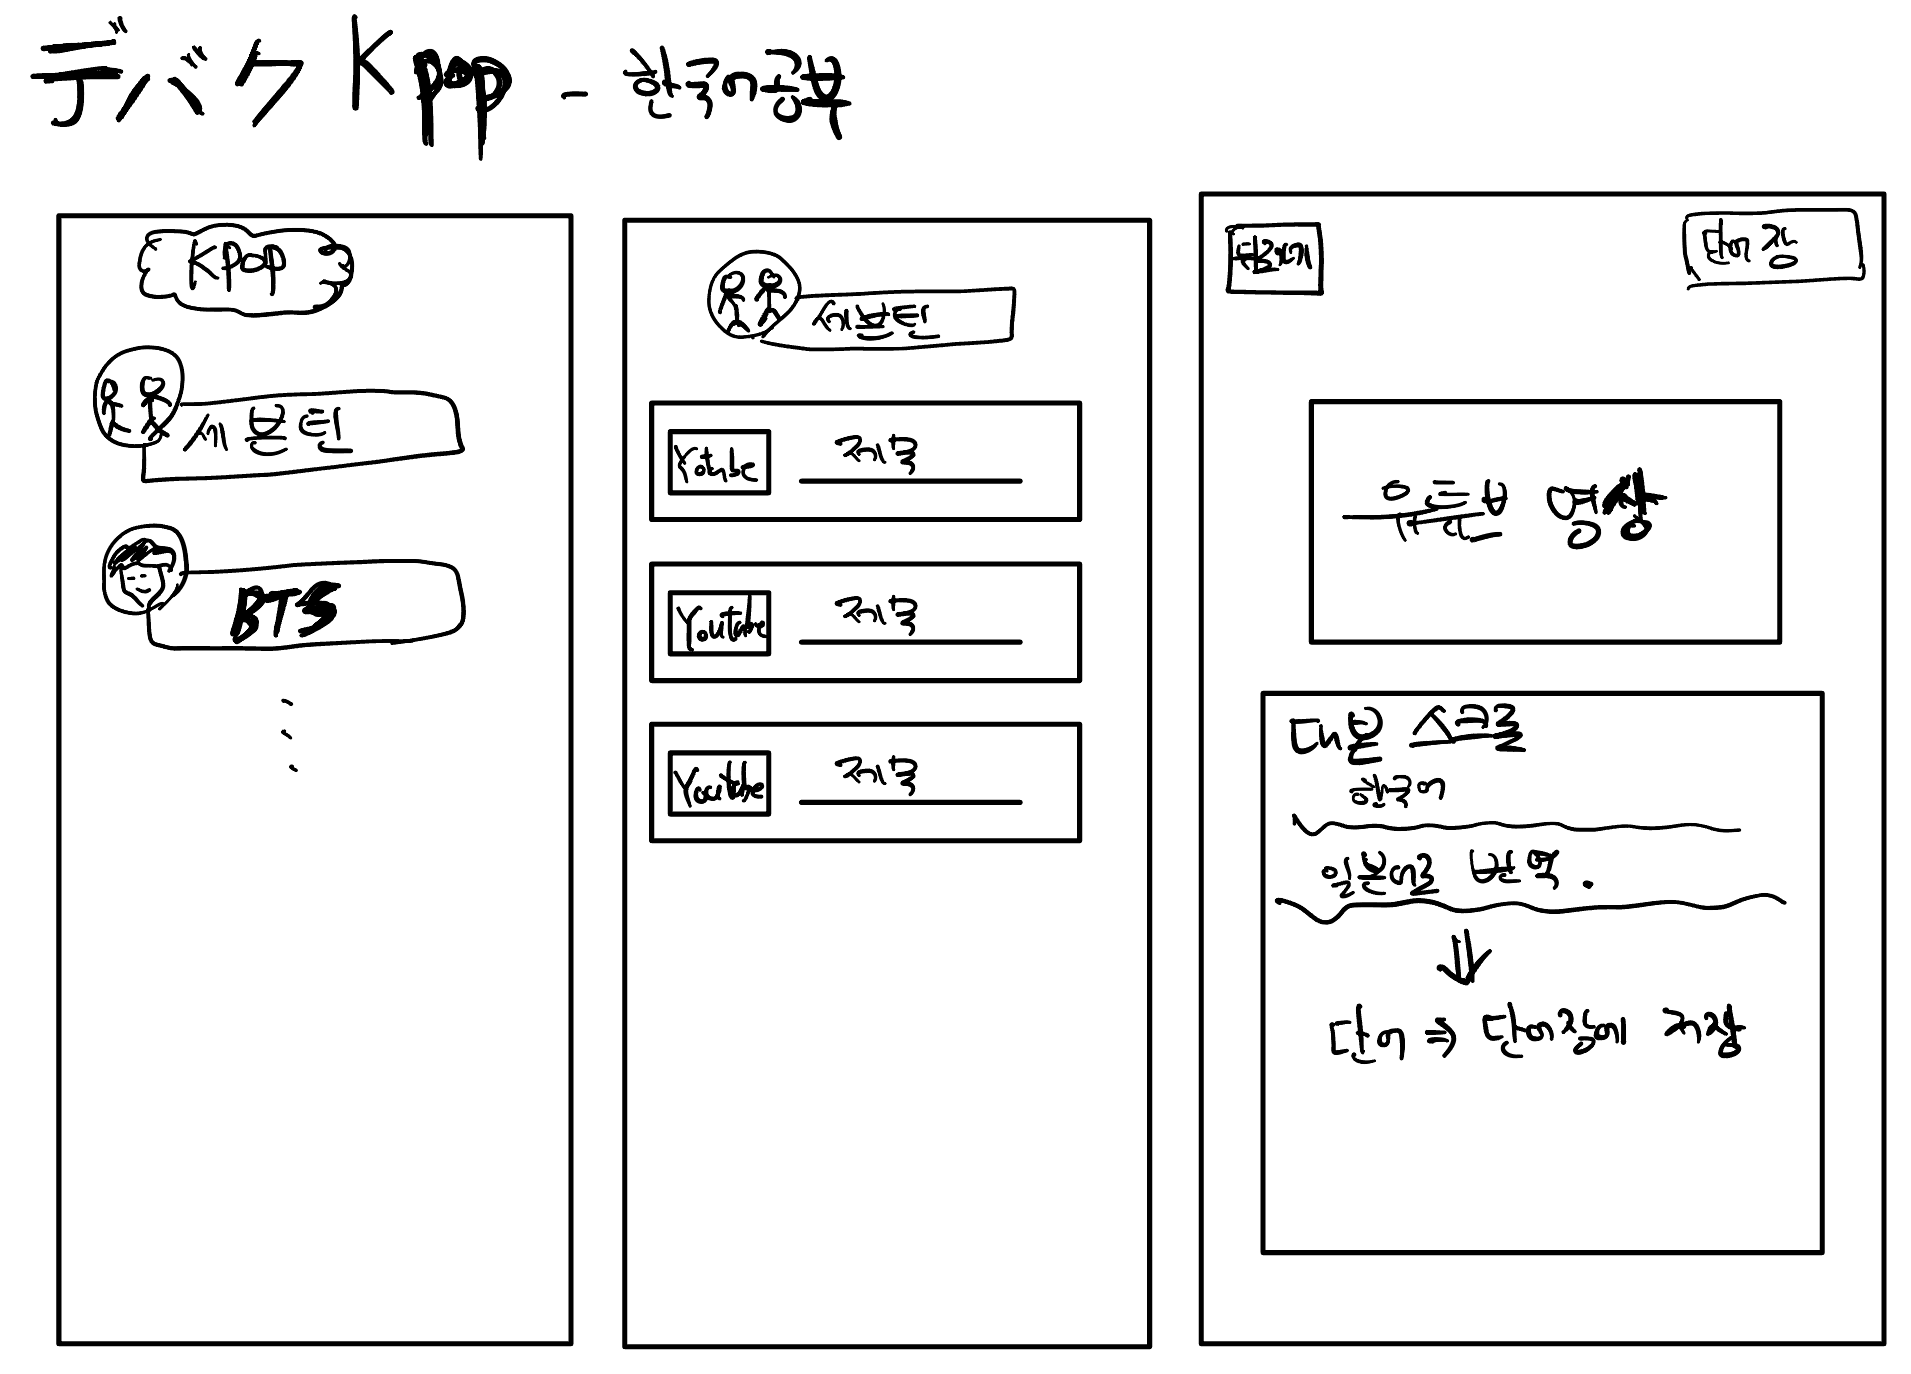 デバク Kpop - 한국어공부
Kpop
세븐틴
BTS
세븐틴
Yotube
제목
Youtube
제목
Youtube
제목
단어장
유튜브 영상
대본 스크롤
한국어
일본어로 번역.
단어 ⇒ 단어장에 저장